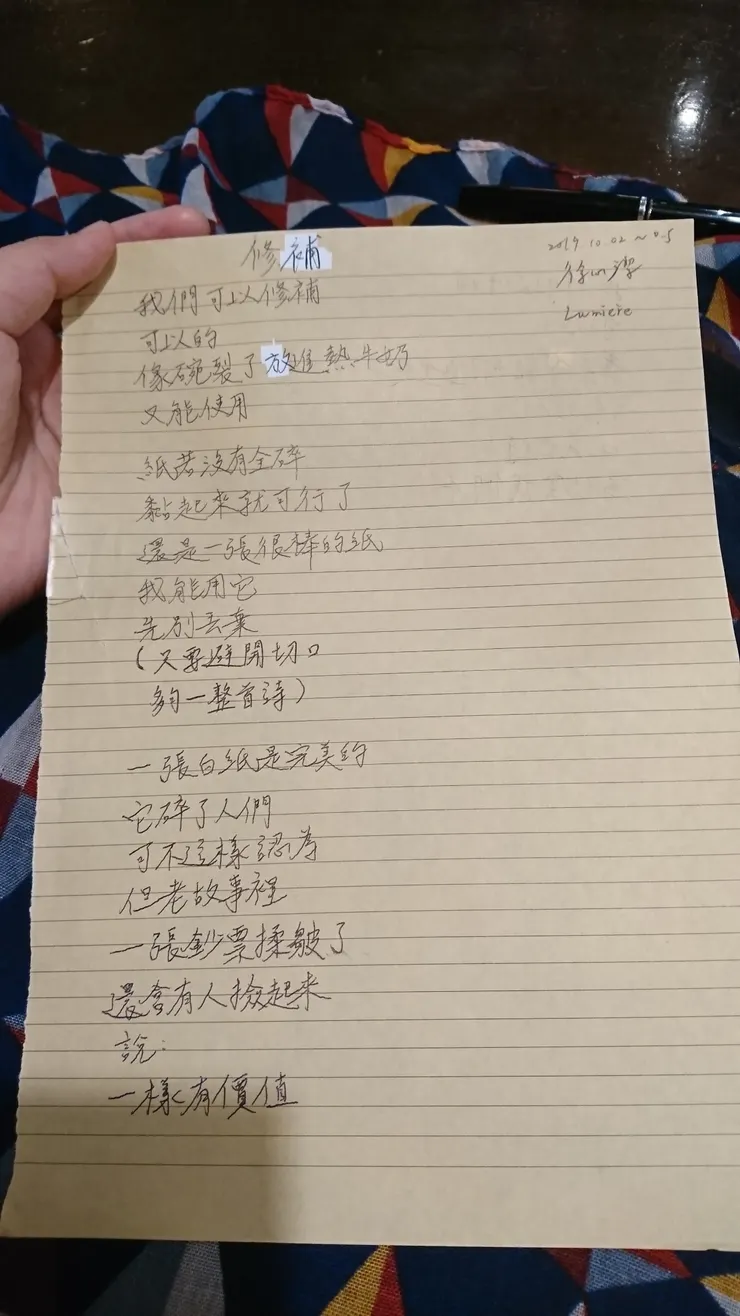 修補
2019 10.02 ~ 0.5
Lumiere
我們可以修補
可以的
像碗裂了放進熱牛奶
又能使用
紙若沒有全碎
黏起來就可行了
還是一張很棒的紙
我能用它
先別丟棄
(只要避開切口
夠一整首詩)
一張白紙是完美的
它碎了人們
可不這樣認為
但老故事裡
一張鈔票揉皺了
還會有人撿起來
說:
一樣有價值